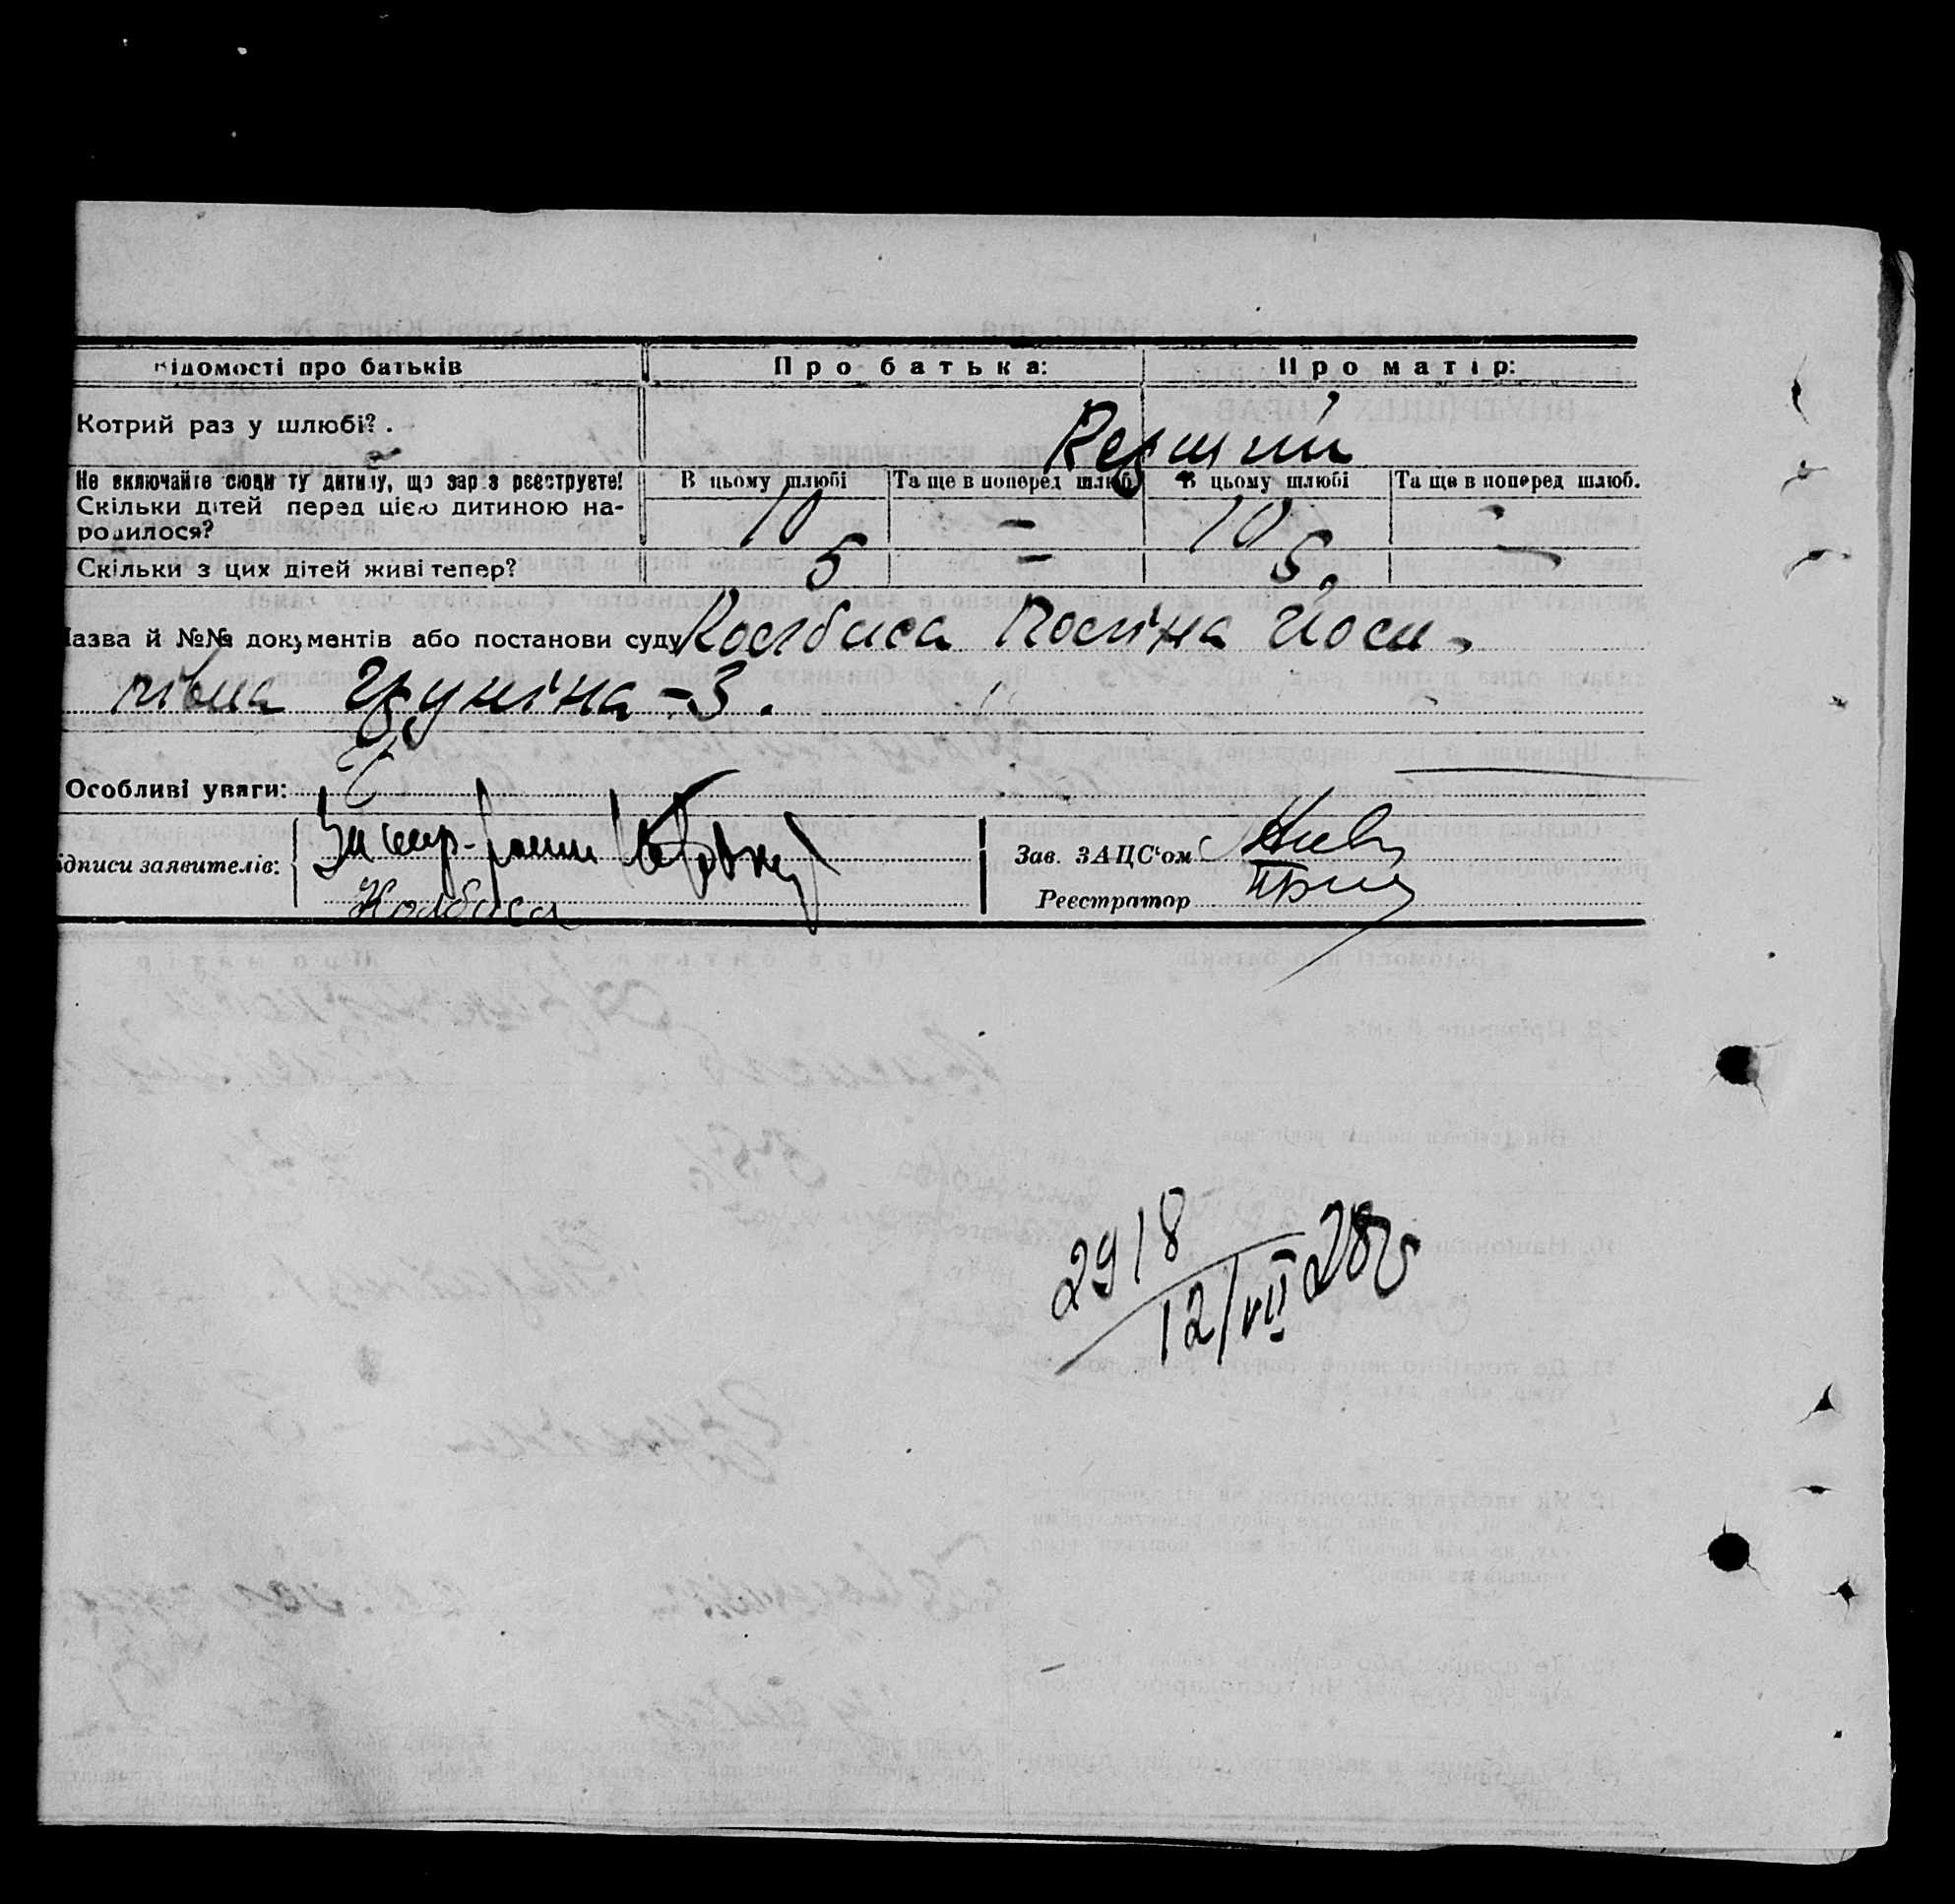 Відомості про батьків Про батька: Про матір:
Котрий раз у шлюбі?. Первший
Не включайте сюди ту дитину, що зараз реєструєте! В цьому шлюбі Та ще в поперед шлюб В цьому шлюбі Та ще в поперед шлюб.
Скільки дітей перед цією дитиною на-
родилося? 10 — 10 -
Скільки з цих дітей живі тепер? 5 — 5. —
Назва й №№ документів або постанови суду Колбаса Поліна Йоси-
півна -3.
Особливі уваги:
підписи заявителів: Зав. ЗАЦС'ом
Колбаса Реєстратор
2918
12/VII 28р